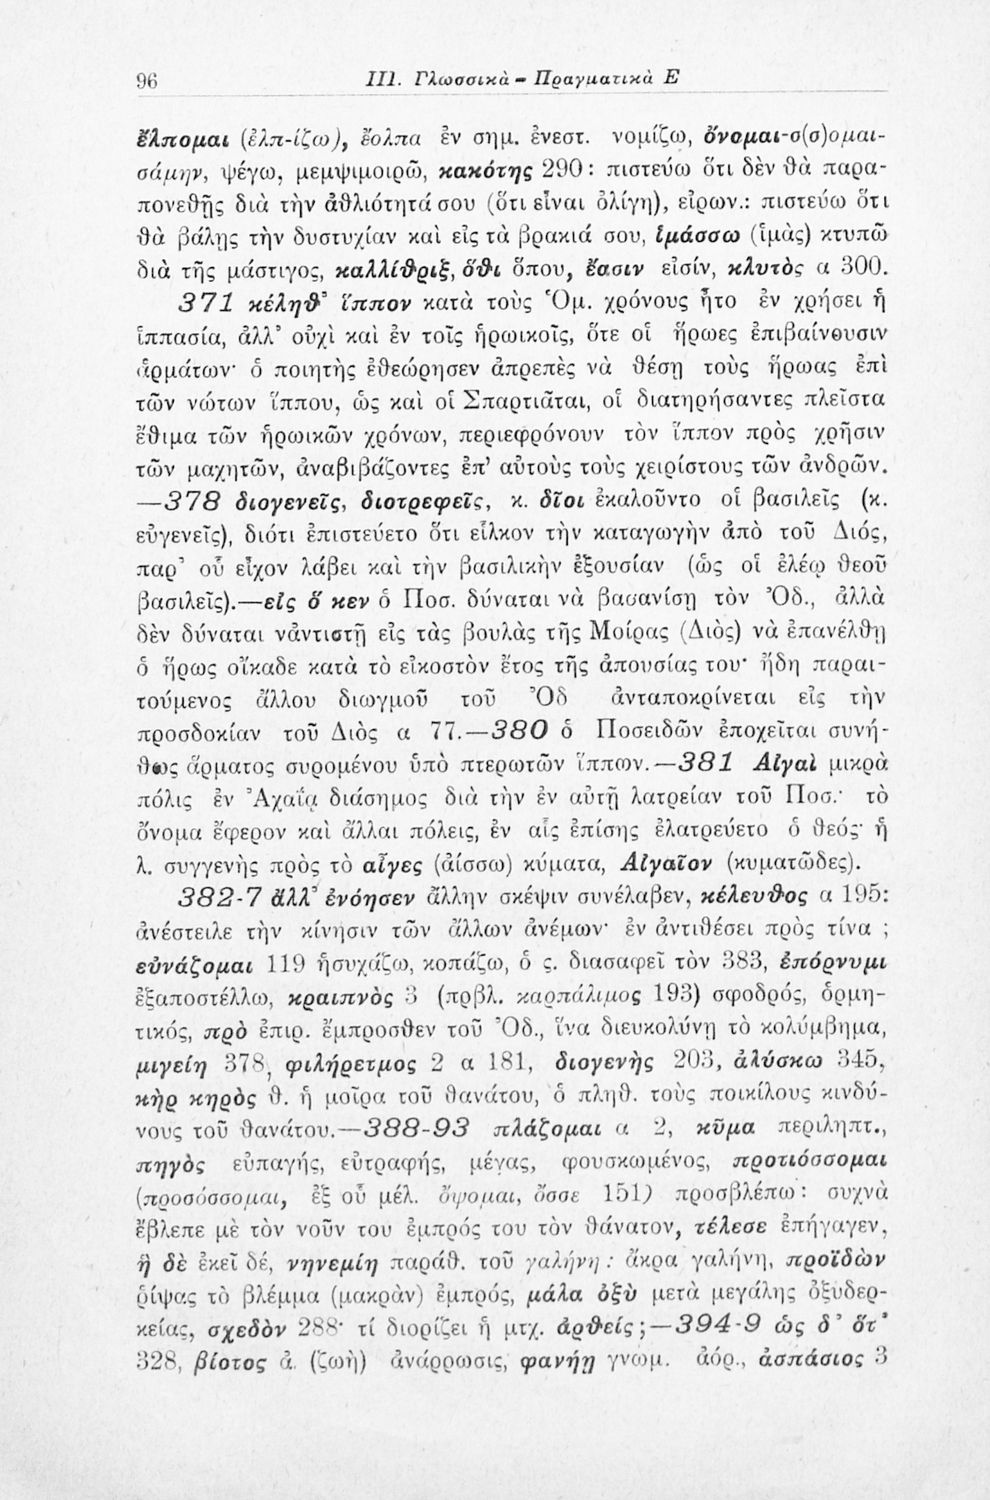 96
III. Γλωσσικὰ - Πραγματικὰ Ε
ἔλπομαι (ἐλπ-ίζω), ἔολπα ἐν σημ. ἐνεστ. νομίζω, ὄνομαι-σ(σ)ομαι-
σάμην, ψέγω, μεμψιμοιρῶ, κακότης 290: πιστεύω ὅτι δὲν θὰ παρα-
πονεθῇς διὰ τὴν ἀθλιότητά σου (ὅτι εἶναι ὀλίγη), εἰρων.: πιστεύω ὅτι
θὰ βάλῃς τὴν δυστυχίαν καὶ εἰς τὰ βρακιά σου, ἱμάσσω (ἱμὰς) κτυπῶ
διὰ τῆς μάστιγος, καλλίθριξ, ὅθι ὅπου, ἔασιν εἰσίν, κλυτὸς α 300.
371 κέληθ’ ἵππον κατὰ τοὺς Ὁμ. χρόνους ἦτο ἐν χρήσει ἡ
ἱππασία, ἀλλ’ οὐχὶ καὶ ἐν τοῖς ἡρωικοῖς, ὅτε οἱ ἥρωες ἐπιβαίνουσιν
ἁρμάτων· ὁ ποιητὴς ἐθεώρησεν ἀπρεπὲς νὰ θέσῃ τοὺς ἥρωας ἐπὶ
τῶν νώτων ἵππου, ὡς καὶ οἱ Σπαρτιᾶται, οἱ διατηρήσαντες πλεῖστα
ἔθιμα τῶν ἡρωικῶν χρόνων, περιεφρόνουν τὸν ἵππον πρὸς χρῆσιν
τῶν μαχητῶν, ἀναβιβάζοντες ἐπ’ αὐτοὺς τοὺς χειρίστους τῶν ἀνδρῶν.
—378 διογενεῖς, διοτρεφεῖς, κ. δῖοι ἐκαλοῦντο οἱ βασιλεῖς (κ.
εὐγενεῖς), διότι ἐπιστεύετο ὅτι εἷλκον τὴν καταγωγὴν ἀπὸ τοῦ Διός,
παρ’ οὗ εἶχον λάβει καὶ τὴν βασιλικὴν ἐξουσίαν (ὡς οἱ ἐλέῳ θεοῦ
βασιλεῖς).—εἰς ὅ κεν ὁ Ποσ. δύναται νὰ βασανίσῃ τὸν Ὀδ., ἀλλὰ
δὲν δύναται νἀντιστῇ εἰς τὰς βουλὰς τῆς Μοίρας (Διὸς) νὰ ἐπανέλθῃ
ὁ ἥρως οἴκαδε κατὰ τὸ εἰκοστὸν ἔτος τῆς ἀπουσίας του· ἤδη παραι-
τούμενος ἄλλου διωγμοῦ τοῦ Ὀδ ἀνταποκρίνεται εἰς τὴν
προσδοκίαν τοῦ Διὸς α 77.—380 ὁ Ποσειδῶν ἐποχεῖται συνή-
θως ἅρματος συρομένου ὑπὸ πτερωτῶν ἵππων.—381 Αἰγαὶ μικρὰ
πόλις ἐν Ἀχαΐᾳ διάσημος διὰ τὴν ἐν αὐτῇ λατρείαν τοῦ Ποσ.· τὸ
ὄνομα ἔφερον καὶ ἄλλαι πόλεις, ἐν αἷς ἐπίσης ἐλατρεύετο ὁ θεός· ἡ
λ. συγγενὴς πρὸς τὸ αἶγες (ἀίσσω) κύματα, Αἰγαῖον (κυματῶδες).
382-7 ἀλλ’ ἐνόησεν ἄλλην σκέψιν συνέλαβεν, κέλευθος α 195:
ἀνέστειλε τὴν κίνησιν τῶν ἄλλων ἀνέμων· ἐν ἀντιθέσει πρὸς τίνα ;
εὐνάζομαι 119 ἡσυχάζω, κοπάζω, ὁ ς. διασαφεῖ τὸν 383, ἐπόρνυμι
ἐξαποστέλλω, κραιπνὸς 3 (πρβλ. καρπάλιμος 193) σφοδρός, ὁρμη-
τικός, πρὸ ἐπιρ. ἔμπροσθεν τοῦ Ὀδ., ἵνα διευκολύνῃ τὸ κολύμβημα,
μιγείη 378, φιλήρετμος 2 α 181, διογενὴς 203, ἀλύσκω 345,
κὴρ κηρὸς θ. ἡ μοῖρα τοῦ θανάτου, ὁ πληθ. τοὺς ποικίλους κινδύ-
νους τοῦ θανάτου.—388-93 πλάζομαι α 2, κῦμα περιληπτ.,
πηγὸς εὐπαγής, εὐτραφής, μέγας, φουσκωμένος, προτιόσσομαι
(προσόσσομαι, ἐξ οὗ μέλ. ὄψομαι, ὄσσε 151) προσβλέπω: συχνὰ
ἔβλεπε μὲ τὸν νοῦν του ἐμπρός του τὸν θάνατον, τέλεσε ἐπήγαγεν,
ἡ δὲ ἐκεῖ δέ, νηνεμίη παράθ. τοῦ γαλήνη: ἄκρα γαλήνη, προϊδὼν
ῥίψας τὸ βλέμμα (μακρὰν) ἐμπρός, μάλα ὀξὺ μετὰ μεγάλης ὀξυδερ-
κείας, σχεδὸν 288· τί διορίζει ἡ μτχ. ἀρθείς;—394-9 ὡς δ’ ὅτ’
328, βίοτος ἀ. (ζωὴ) ἀνάρρωσις, φανήῃ γνωμ. ἀόρ., ἀσπάσιος 3